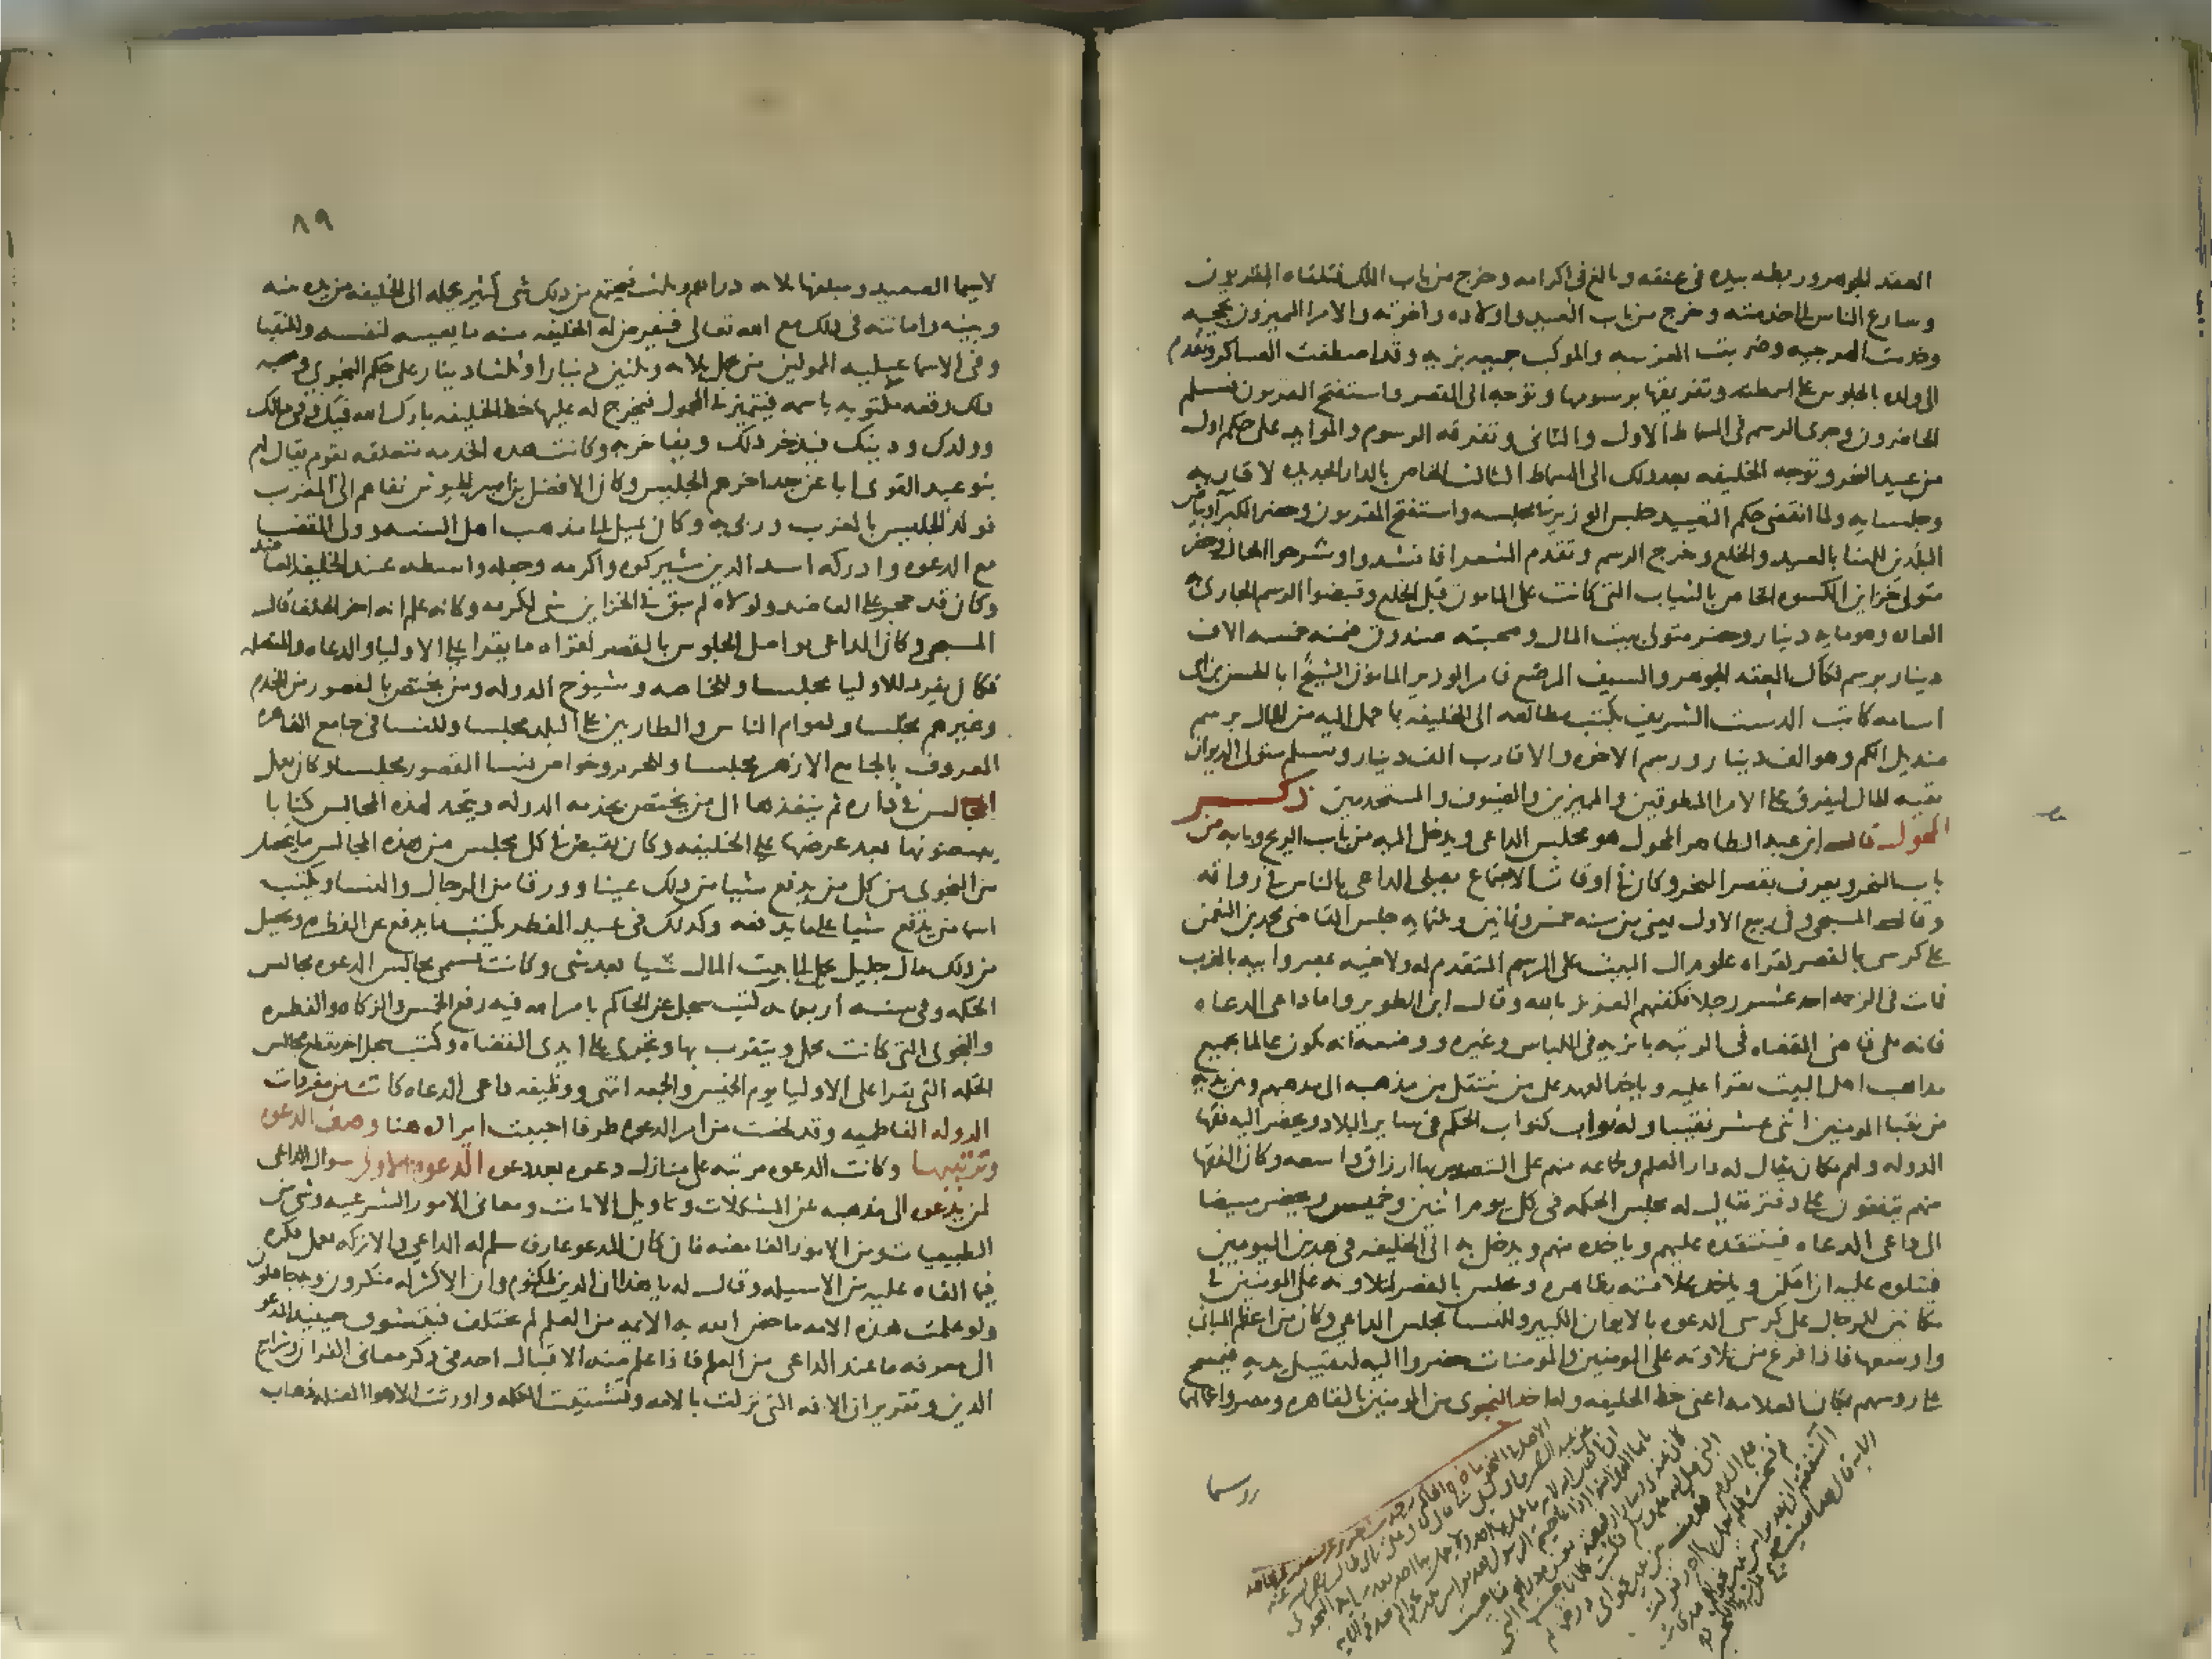 العقد الجوهر وربطه بيده في عنقه وبالغ في اكرامه وخرج من باب الملك فتلقاه المقربون
وسارع الناس الى خدمته وخرج من باب العيد واولاده واخوته والامرا المميزون بحجبه
وخدمت الرهجيه وضربت العربيه والموكب جميعه بزيه وقد اصطفت العساكر وتقدم
الى ولده بالجلوس على اسمطته وتفريقها برسومها وتوجه الى القصر واستفتح المقربون فسلم
الحاضرون وجرى الرسم في السماط الاول والثاني وتفرقه الرسوم والمواجب على حكم اول
من عيد النحر وتوجه الخليفه بعد ذلك الى السماط الثالث الخاص بالدار الجديده لاقاربه
وجلسايه ولما انقضى حكم التعييد جلس الوزير في مجلسه واستفتح المقربون وحضر الكبرا وبياض
البلدين للهنا بالعيد والخلع وخرج الرسم وتقدم الشعرا فانشدوا وشرحوا الحال وحضر
متولي خزاين الكسوه الخاص بالثياب التي كانت على المامون قبل الخلع وقبضوا الرسم الجاري به
العاده وهو مايه دينار وحضر متولي بيت المال وصحبته صندوق ضمنه خمسه الاف
دينار برسم فكاك العقد الجوهر والسيف المرصع فامر الوزير المامون الشيخ ابا الحسن بن ابي
اسامه كاتب الدست الشريف بكتب مطالعه الى الخليفه بما حمل اليه من المال برسم
منديل الكم وهو الف دينار ورسم الاخوه والاقارب الف دينار وتسلم متولي الديوان
بقيه المال ليفرق على الامرا المطوقين والمميزين والضيوف والمستخدمين ذكر
المحول قال ابن عبد الظاهر المحول هو مجلس الداعي ويدخل اليه من باب الريح وبابه من
باب البحر ويعرف بقصر البحر وكان في اوقات الاجتماع يصلي الداعي بالناس في رواقه
وقال المسبحي وفي ربيع الاول يعني من سنه خمس وثمانين وثلثمايه جلس القاضي محمد بن النعمن
على كرسي بالقصر لقراه علوم ال البيت على الرسم المتقدم له ولاخيه بمصر وابيه بالغرب
فمات في الزحمه احد عشر رجلا فكفنهم العزيز بالله وقال ابن الطوير واما داعي الدعاه
فانه يلي قاضي القضاه في الرتبه ويتزيا بزيه في اللباس وغيره ووصفه انه يكون عالما بجميع
مذاهب اهل البيت يقرا عليه وياخذ العهد على من ينتقل من مذهبه الى مذهبهم وبين يديه
من نقبا المومنين اثني عشر نقيبا وله نواب كنواب الحكم في ساير البلاد ويحضر اليه فقها
الدوله ولهم مكان يقال له دار العلم ولجماعه منهم على التصدير بها ارزاق واسعه وكان الفقها
منهم يتفقون على دفتر يقال له مجلس الحكمه في كل يوم اثنين وخميس ويحضر مبيضا
الى داعي الدعاه فينفذه عليهم وياخذه منهم ويدخل به الى الخليفه في هذين اليومين
فيتلوه عليه ان امكن وياخذ علامته بظاهره ويجلس بالقصر لتلاوته على المومنين في
مكانين للرجال على كرسي الدعوه بالايوان الكبير وللنسا بمجلس الداعي وكان من اعظم المباني
واوسعها فاذا فرغ من تلاوته على المومنين والمومنات حضروا اليه لتقبيل يديه فيمسح
على روسهم بمكان العلامه اعني خط الخليفه وله اخذ النجوى من المومنين بالقاهره ومصر واعمالهما
٨٩
لاسيما الصعيد ومبلغها ثلاثه دراهم وثلث فيجتمع من ذلك شي كثير يحمله الى الخليفه من يده بينه
وبينه وامانته في ذلك مع الله تعالى فيفرض له الخليفه منه ما يعينه لنفسه وللنقبا
وفي الاسماعيليه المموليين من يحمل ثلاثه وثلثين دينارا وثلثا دينار على حكم النجوى وصحبه
ذلك رقعه مكتوبه باسمه فيتميز في المحول فيخرج له عليها خط الخليفه بارك الله فيك وفي مالك
وولدك ودينك فيدخر ذلك ويفاخر به وكانت هذه الخدمه متعلقه بقوم يقال لهم
بنو عبد القوي ابا عن جد اخرهم الجليس وكان الافضل بن امير الجيوش نفاهم الى المغرب
فولد الجليس بالمغرب وربي به وكان يميل الى مذهب اهل السنه وولي القضا
مع الدعوه وادركه اسد الدين شيركوه واكرمه وجعله واسطه عند الخليفه العاضد
وكان قد حجر على العاضد ولولاه لم يبق في الخزاين شي لكرمه وكانه علم انه اخر الخلفا قال
المسبحي وكان الداعي يواصل الجلوس بالقصر لقراه ما يقرا على الاوليا والدعاه والمتصله
فكان يفرد للاوليا مجلسا وللخاصه وشيوخ الدوله ومن يختص بالقصور من الخدم
وغيرهم مجلسا ولعوام الناس والطارين على البلد مجلسا وللنسا في جامع القاهره
المعروف بالجامع الازهر مجلسا وللحرم وخواص نسا القصور مجلسا وكان يعمل
المجالس في داره ثم ينفذها الى من يختص بخدمه الدوله ويتخذ لهذه المجالس كتابا
يبيضونها بعد عرضها على الخليفه وكان يقبض في كل مجلس من هذه المجالس ما يتحصل
من النجوى من كل من يدفع شيا من ذلك عينا وورقا من الرجال والنسا ويكتب
اسما من يدفع شيا على ما يدفعه وكذلك في عيد الفطر يكتب ما يدفع عن الفطره ويحصل
من ذلك مال جليل يحمل الى بيت المال شيا بعد شي وكانت تسمى مجالس الدعوه مجالس
الحكمه وفي سنه اربعمايه كتب سجل عن الحاكم بامر الله فيه رفع الخمس والزكاه والفطره
والنجوى التي كانت تحمل ويتقرب بها وتجرى على ايدي القضاه وكتب سجل اخر بقطع مجالس
الحكمه التي تقرا على الاوليا يوم الخميس والجمعه انتهى ووظيفه داعي الدعاه كانت من مفردات
الدوله الفاطميه وقد لخصت من امر الدعوه طرفا احببت ايراده هنا وصف الدعوه
وترتيبها وكانت الدعوه مرتبه على منازل دعوه بعد دعوه الدعوه الاولى سوال الداعي
لمن يدعوه الى مذهبه عن المشكلات وتاويل الايات ومعاني الامور الشرعيه وشي من
الطبيعيات ومن الامور الغامضه فان كان المدعو عارفا سلم له الداعي والا تركه يعمل فكره
فيما القاه عليه من الاسيله وقال له يا هذا ان الدين لمكتوم وان الاكثر له منكرون وبه جاهلون
ولو علمت هذه الامه ما خص الله به الايمه من العلم لم تختلف فيتشوق حينيذ المدعو
الى معرفه ما عند الداعي من العلم فاذا علم منه الاقبال اخذ في ذكر معاني القران وشرايع
الدين وتقرير ان الافه التي نزلت بالامه وشتتت الكلمه واورثت الاهوا المضله ذهاب